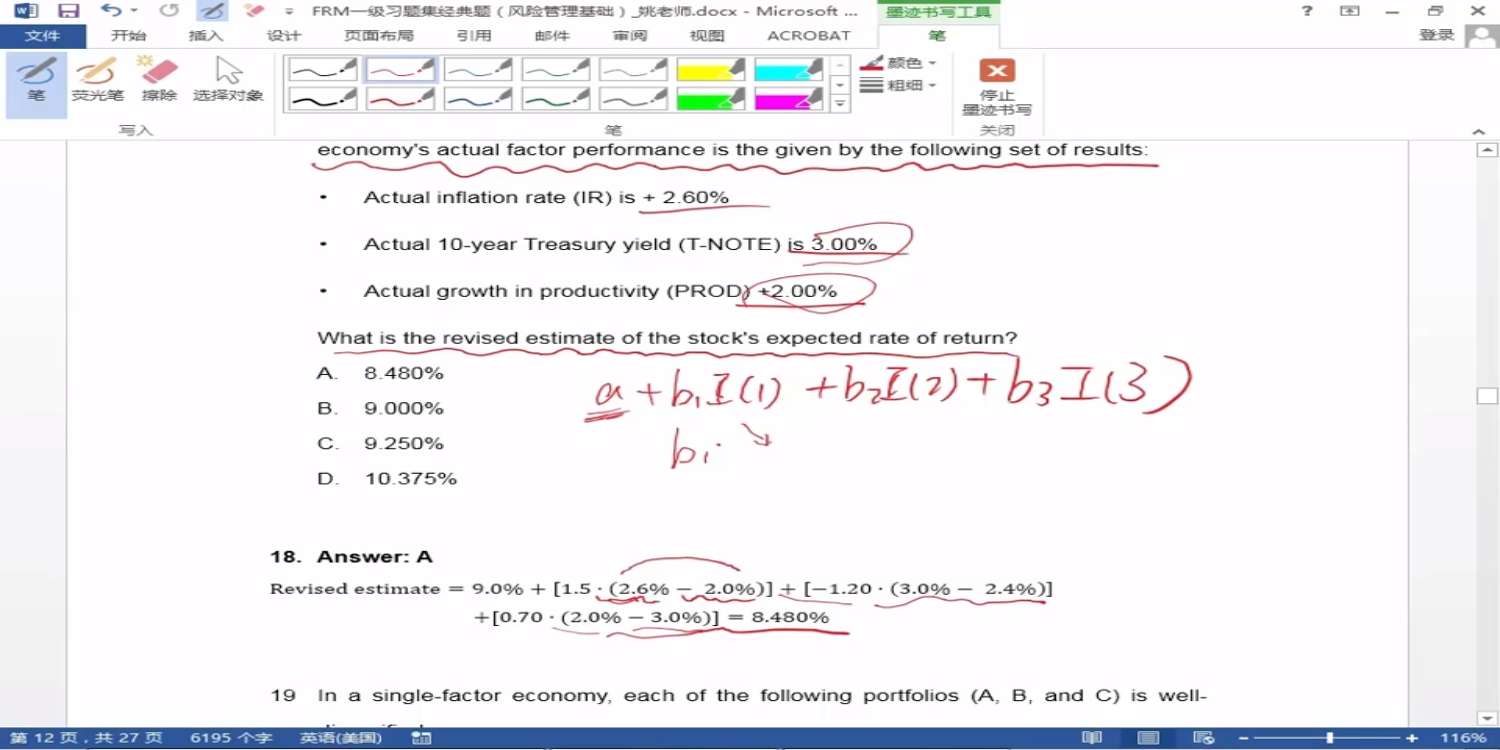 FRM一级习题集经典题（风险管理基础）_姚老师.docx - Microsoft ...
墨迹书写工具
文件 开始 插入 设计 页面布局 引用 邮件 审阅 视图 ACROBAT 笔 登录
笔 荧光笔 擦除 选择对象
颜色
粗细
停止
墨迹书写
写入 笔 关闭
economy's actual factor performance is the given by the following set of results:
• Actual inflation rate (IR) is + 2.60%
• Actual 10-year Treasury yield (T-NOTE) is 3.00%
• Actual growth in productivity (PROD) +2.00%
What is the revised estimate of the stock's expected rate of return?
A. 8.480%
B. 9.000%
C. 9.250%
D. 10.375%
a + b1I(1) + b2I(2) + b3I(3)
b1
18. Answer: A
Revised estimate = 9.0% + [1.5 · (2.6% − 2.0%)] + [−1.20 · (3.0% − 2.4%)]
+[0.70 · (2.0% − 3.0%)] = 8.480%
19 In a single-factor economy, each of the following portfolios (A, B, and C) is well-
第 12 页，共 27 页 6195 个字 英语(美国) 116%